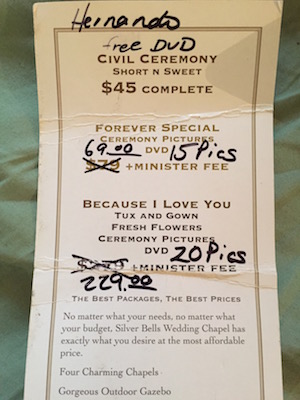 Hernando
free DVD
CIVIL CEREMONY
SHORT N SWEET
$45 COMPLETE
FOREVER SPECIAL
CEREMONY PICTURES
69.00 DVD 15 Pics
$79 +MINISTER FEE
BECAUSE I LOVE YOU
TUX AND GOWN
FRESH FLOWERS
CEREMONY PICTURES
DVD 20 Pics
+MINISTER FEE
229.00
THE BEST PACKAGES, THE BEST PRICES
No matter what your needs, no matter what
your budget, Silver Bells Wedding Chapel has
exactly what you desire at the most affordable
price.
Four Charming Chapels
Gorgeous Outdoor Gazebo